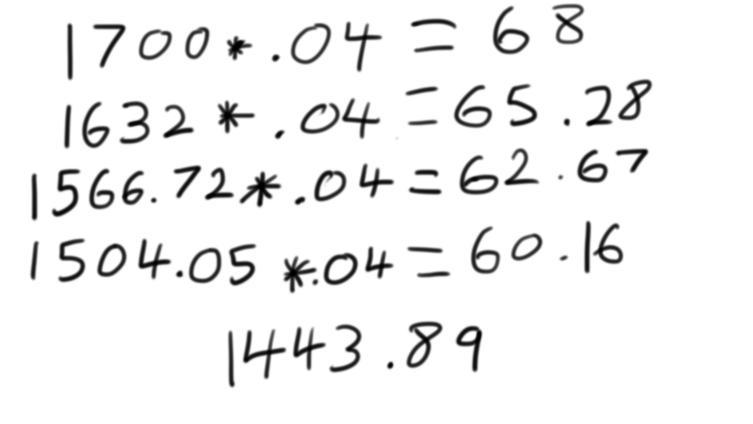 1700*.04=68
1632*.04=65.28
1566.72*.04=62.67
1504.05*.04=60.16
1443.89